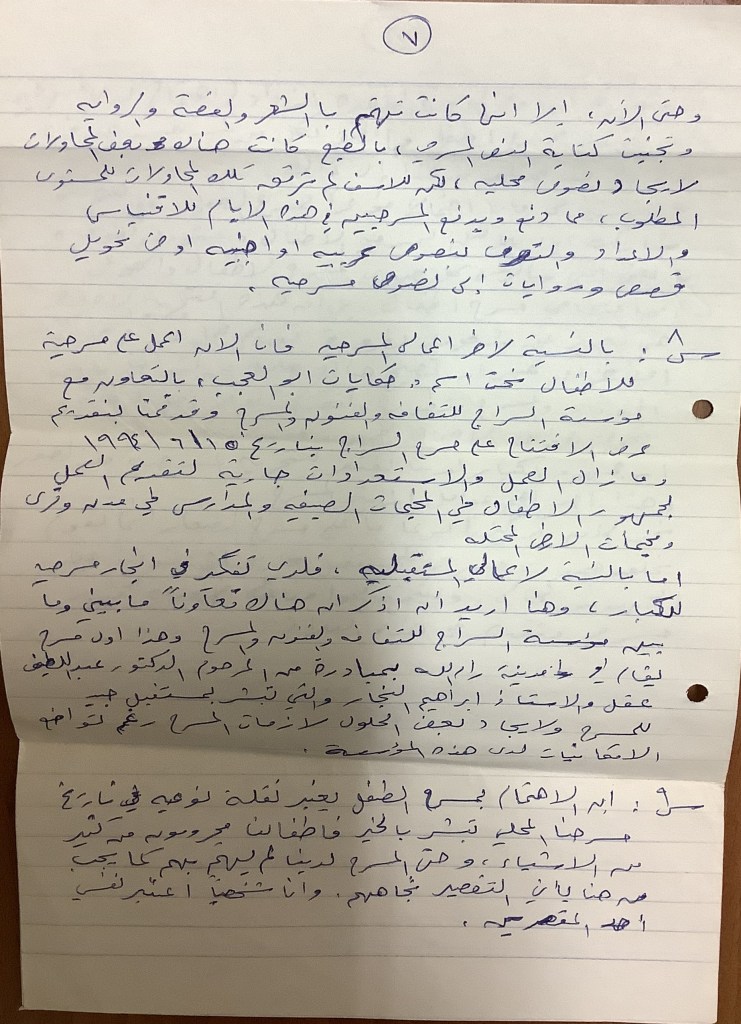 ٧
وحتى الآن، إلا انها كانت تهتم بالشعر والقصة والروايه
وتجنبت كتابة النص المسرحي، بالطبع كانت هناك بعض المحاولات
لايجاد نصوص محليه، لكن للاسف لم ترتق تلك المحاولات للمستوى
المطلوب، مما دفع ويدفع المسرحيين في هذه الايام للاقتباس
والاعداد والتصرف لنصوص عربيه او اجنبيه او من تحويل
قصص وروايات إلى نصوص مسرحيه.
س٨: بالنسبة لاخر اعمالي المسرحيه فأنا الان اعمل على مسرحية
للأطفال تحت اسم حكايات ابو العجب، بالتعاون مع
مؤسسة السراج للثقافه والفنون والمسرح وقد قمنا بتقديم
عرض الافتتاح على مسرح السراج بتاريخ ١٥/٦/١٩٩٤
وما زال العمل والاستعدادات جارية لتقديم العمل
لجمهور الاطفال في المخيمات الصيفيه والمدارس في مدن وقرى
ومخيمات الارض المحتله
اما بالنسبة لاعمالي المستقبليه، فلدي تفكير في انجاز مسرحيه
للكبار، وهنا اريد أن اذكر ان هناك تعاوناً ما بيني وما
بين مؤسسة السراج للثقافه والفنون والمسرح وهذا اول مسرح
يقام في مدينة رام الله بمبادرة من المرحوم الدكتور عبد اللطيف
عقل والاستاذ ابراهيم النجار والتي تبشر بمستقبل جيد
للمسرح ولايجاد بعض الحلول لازمات المسرح رغم تواضع
الامكانيات لدى هذه المؤسسة.
س٩: ان الاهتمام بمسرح الطفل يعتبر نقلة نوعيه في تاريخ
مسرحنا المحلي تبشر بالخير فاطفالنا محرومون من كثير
من الاشياء، وحتى المسرح لدينا لم يهتم بهم كما يجب
من هنا يأتي التقصير تجاههم. وانا شخصياً اعتبر نفسي
أحد المقصرين.